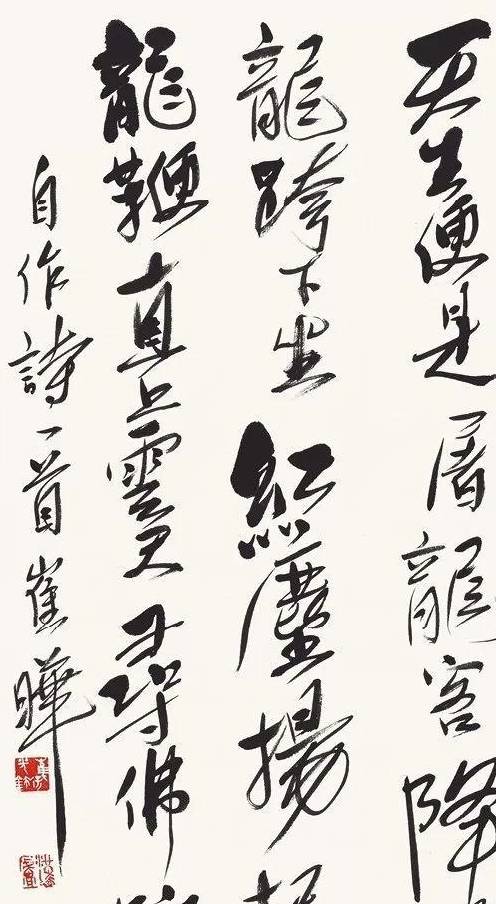 天生便是屠龍客降
龍跨下坐紅塵揚
龍鞭直上雲尋佛
自作詩一首崔曄